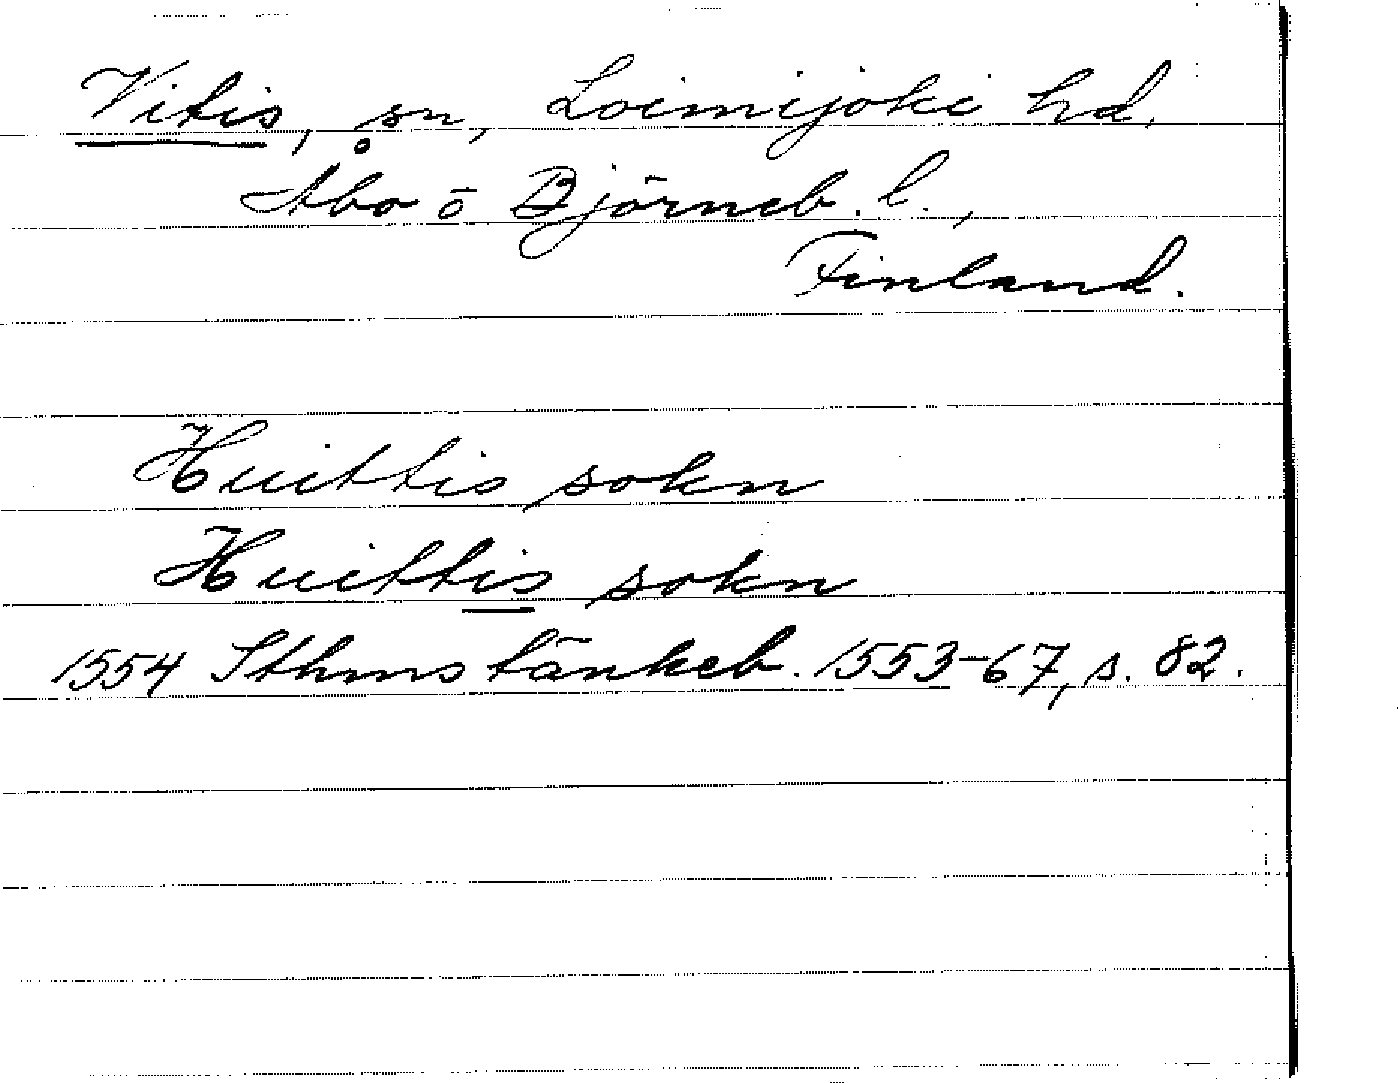 Vitis, sn, Loimijoki hd,
Åbo o Björneb. l.,
Finland.
Huittis sokn
Huittis sokn
1554 Sthms tänkeb. 1553-67, s. 82.